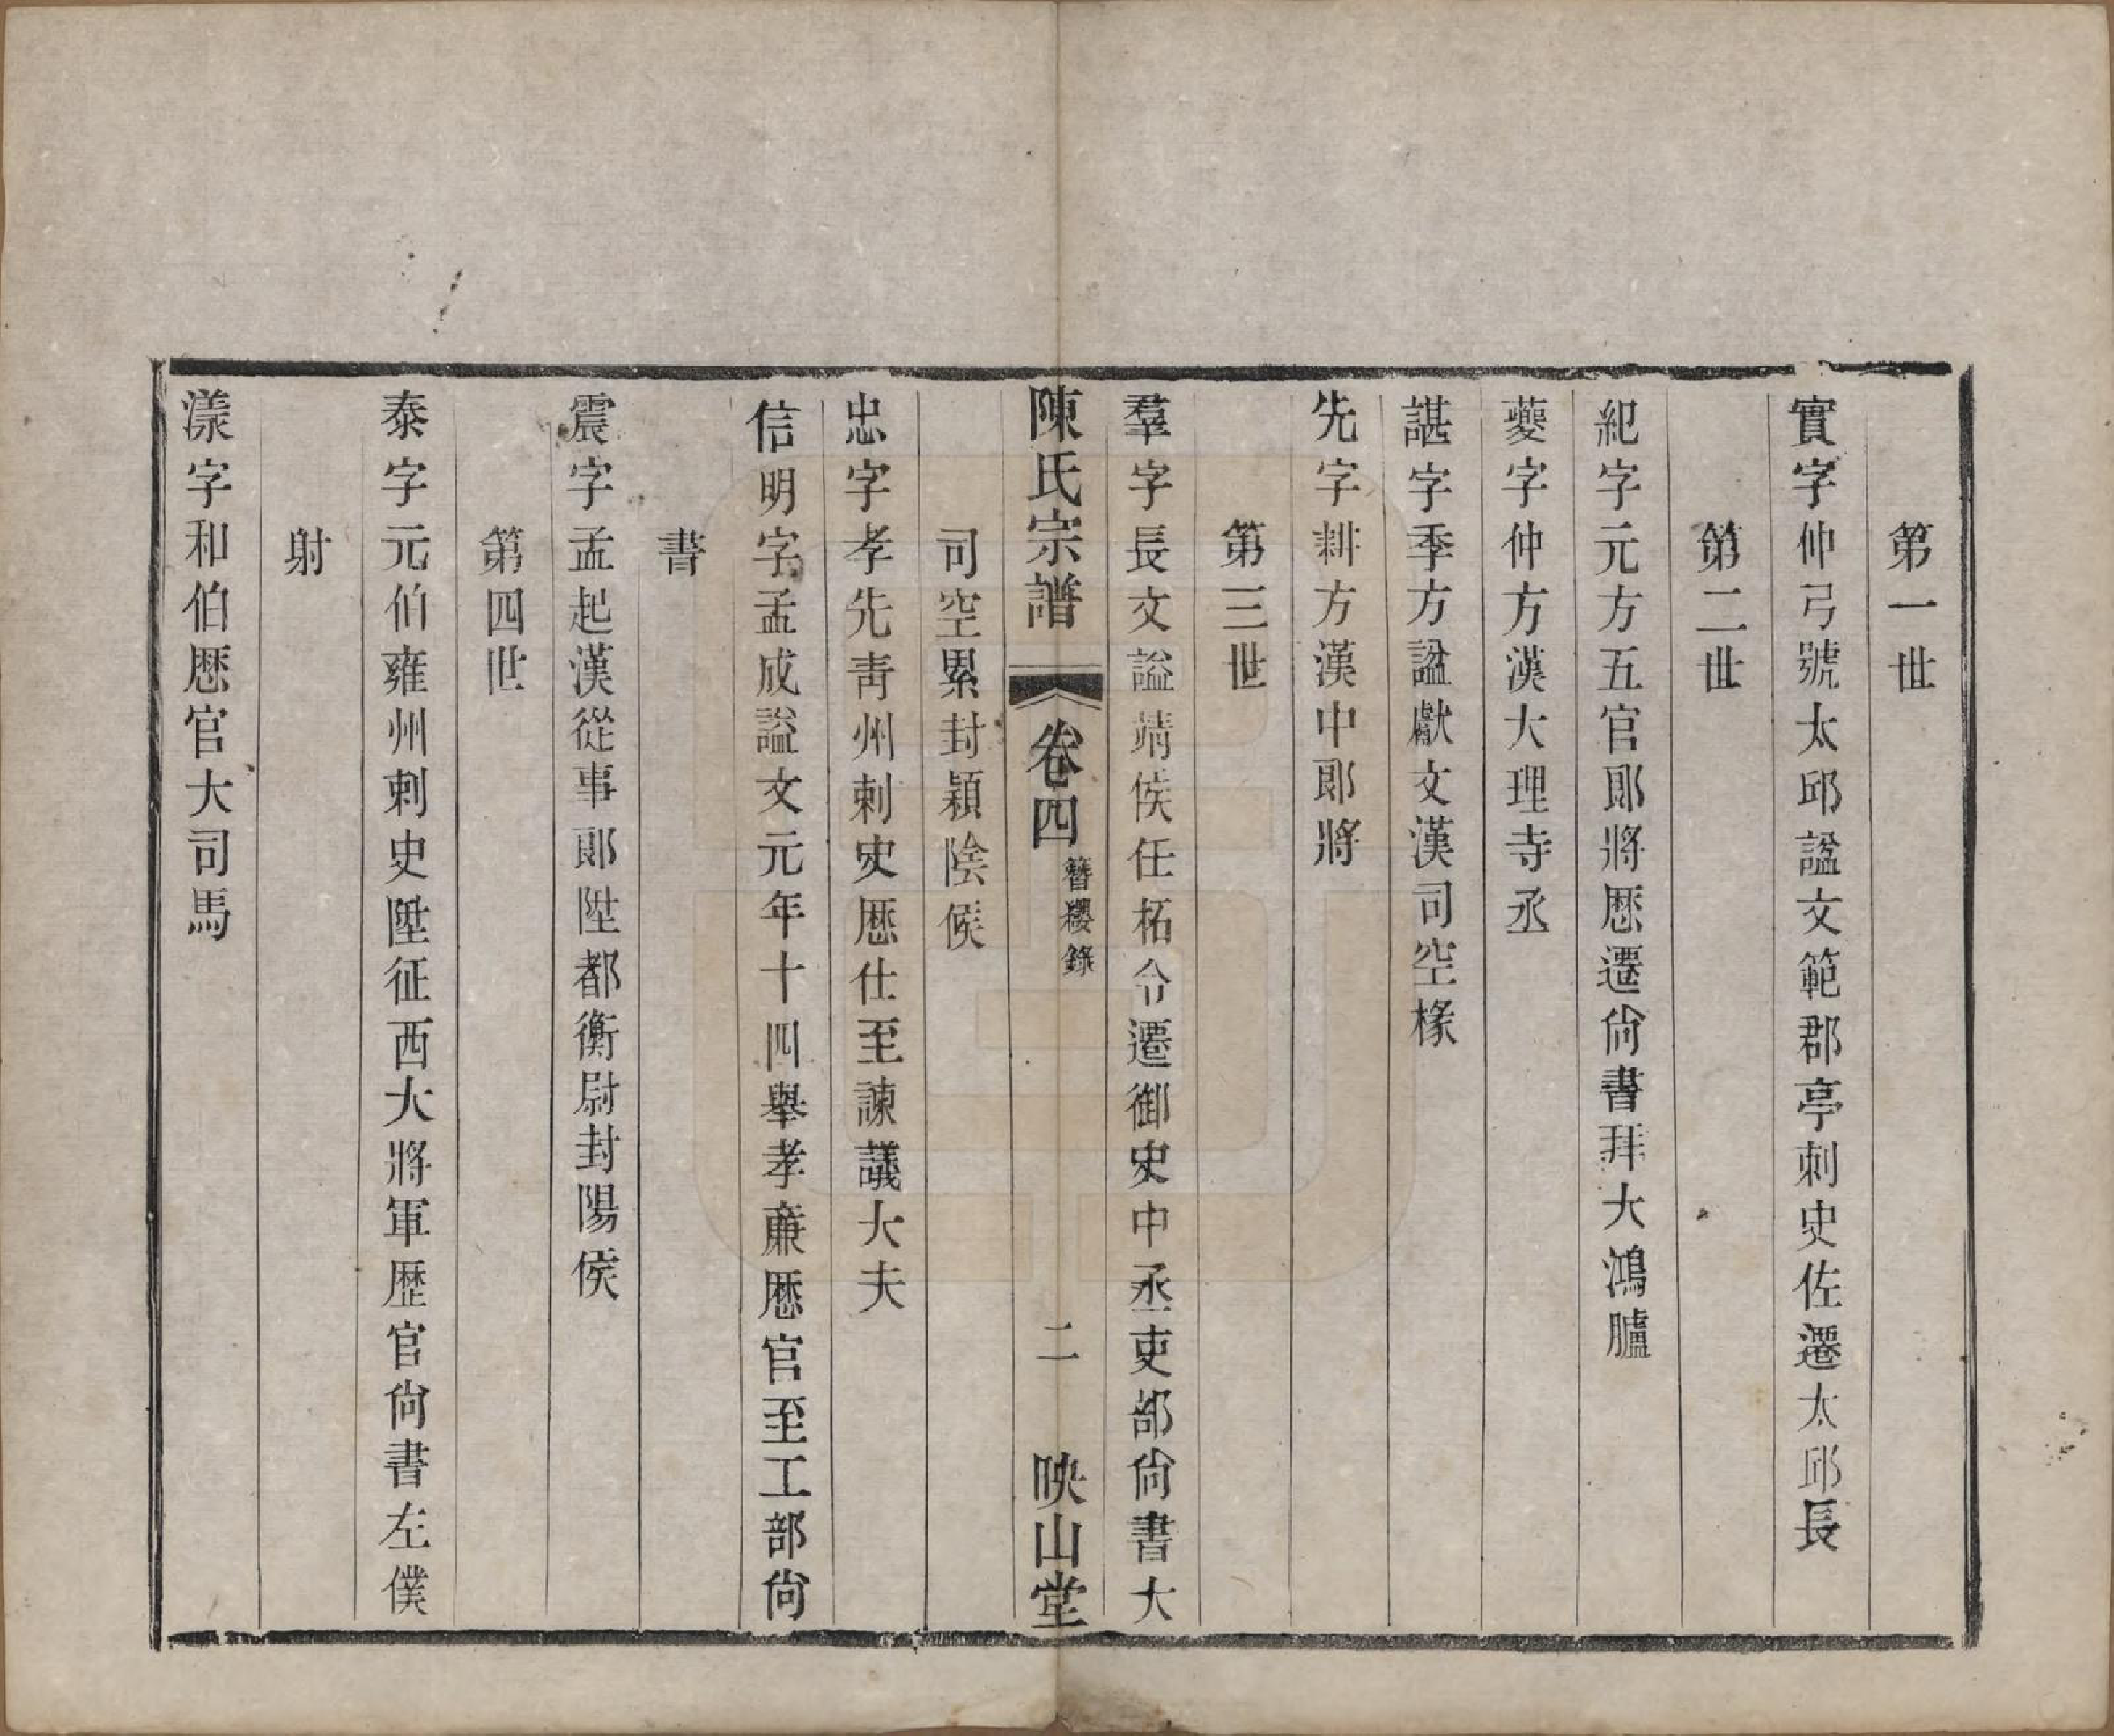 第一世
實字仲弓號太邱諡文範郡亭刺史佐遷太邱長
第二世
紀字元方五官郎將歷遷尙書拜大鴻臚
夔字仲方漢大理寺丞
諶字季方諡獻文漢司空椽
先字耕方漢中郎將
第三世
羣字長文謚靖侯任柘令遷御史中丞吏部尙書大
司空累封穎陰侯
陳氏宗譜 卷四 簪纓錄 二 映山堂
忠字孝先靑州刺史歷仕至諫議大夫
信明字孟成謚文元年十四舉孝廉歷官至工部尙
書
震字孟起漢從事郎陞都衡尉封陽侯
第四世
泰字元伯雍州刺史陞征西大將軍歷官尙書左僕
射
漾字和伯歷官大司馬